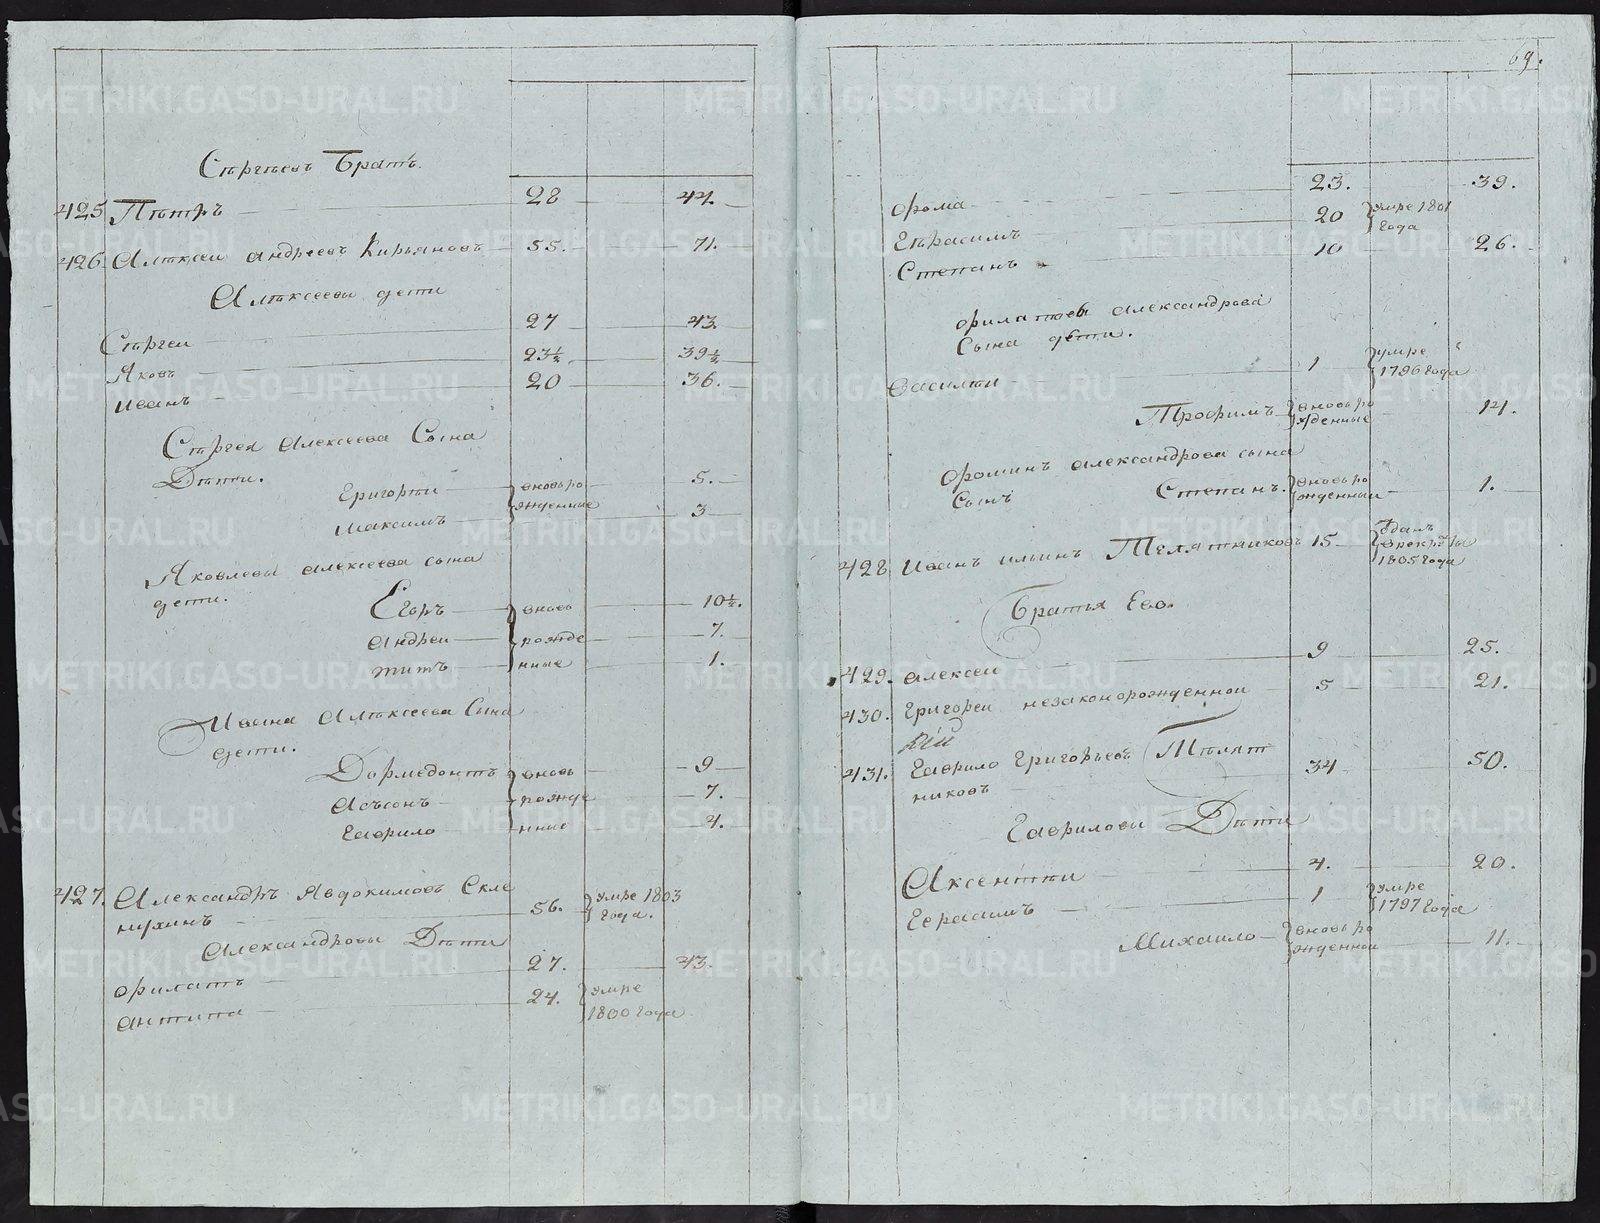 Сергѣевъ Братъ.
425 Петръ 28 44.
426 Алѣксеи андреевъ Кирьяновъ 55. 71.
Алѣксеевы дети
Сергеи 27 43.
Яковъ 23½ 39½
Иванъ 20 36.
Сергея Алексеева Сына
Дѣти.
Григорѣи вновь ро 5.
Максимъ жденные 3
Яковлевы алексеева сына
дети.
Егоръ вновь 10½.
андреи рожде 7.
титъ нные 1.
Ивана Алѣксеева Сына
дети.
Дормедонтъ вновь 9
Асъсонъ рожде 7.
Гаврило нные 4.
427. Александръ Явдокимовъ Скле
мухинъ 56. умре 1803
года.
Александровы Дѣти
Филатъ 27. 43.
антипа 24. умре
1800 года
69.
Фома 23. 39.
Герасимъ 20 умре 1801
года
Степанъ 10 26.
Филатовы Александрова
Сына дети.
Василѣи 1 умре
1796 года
Трофимъ вновь ро 14.
жденные
Фоминъ александрова сына
Сынъ Степанъ. вновь ро 1.
жденныи
428 Иванъ ильинъ Телятниковъ 15 Зданъ
врекруты
1805 года
Братья Ево.
429. алексеи 9 25.
430. Григореи незаконорожденнои 5 21.
431. Гаврило Григорьевъ Тѣлят
никовъ 34 50.
Гавриловы Дѣти
Аксентѣи 4. 20.
Герасимъ 1 умре
1797 года
Михаило вновь ро 11.
жденнои
METRIKI.GASO-URAL.RU